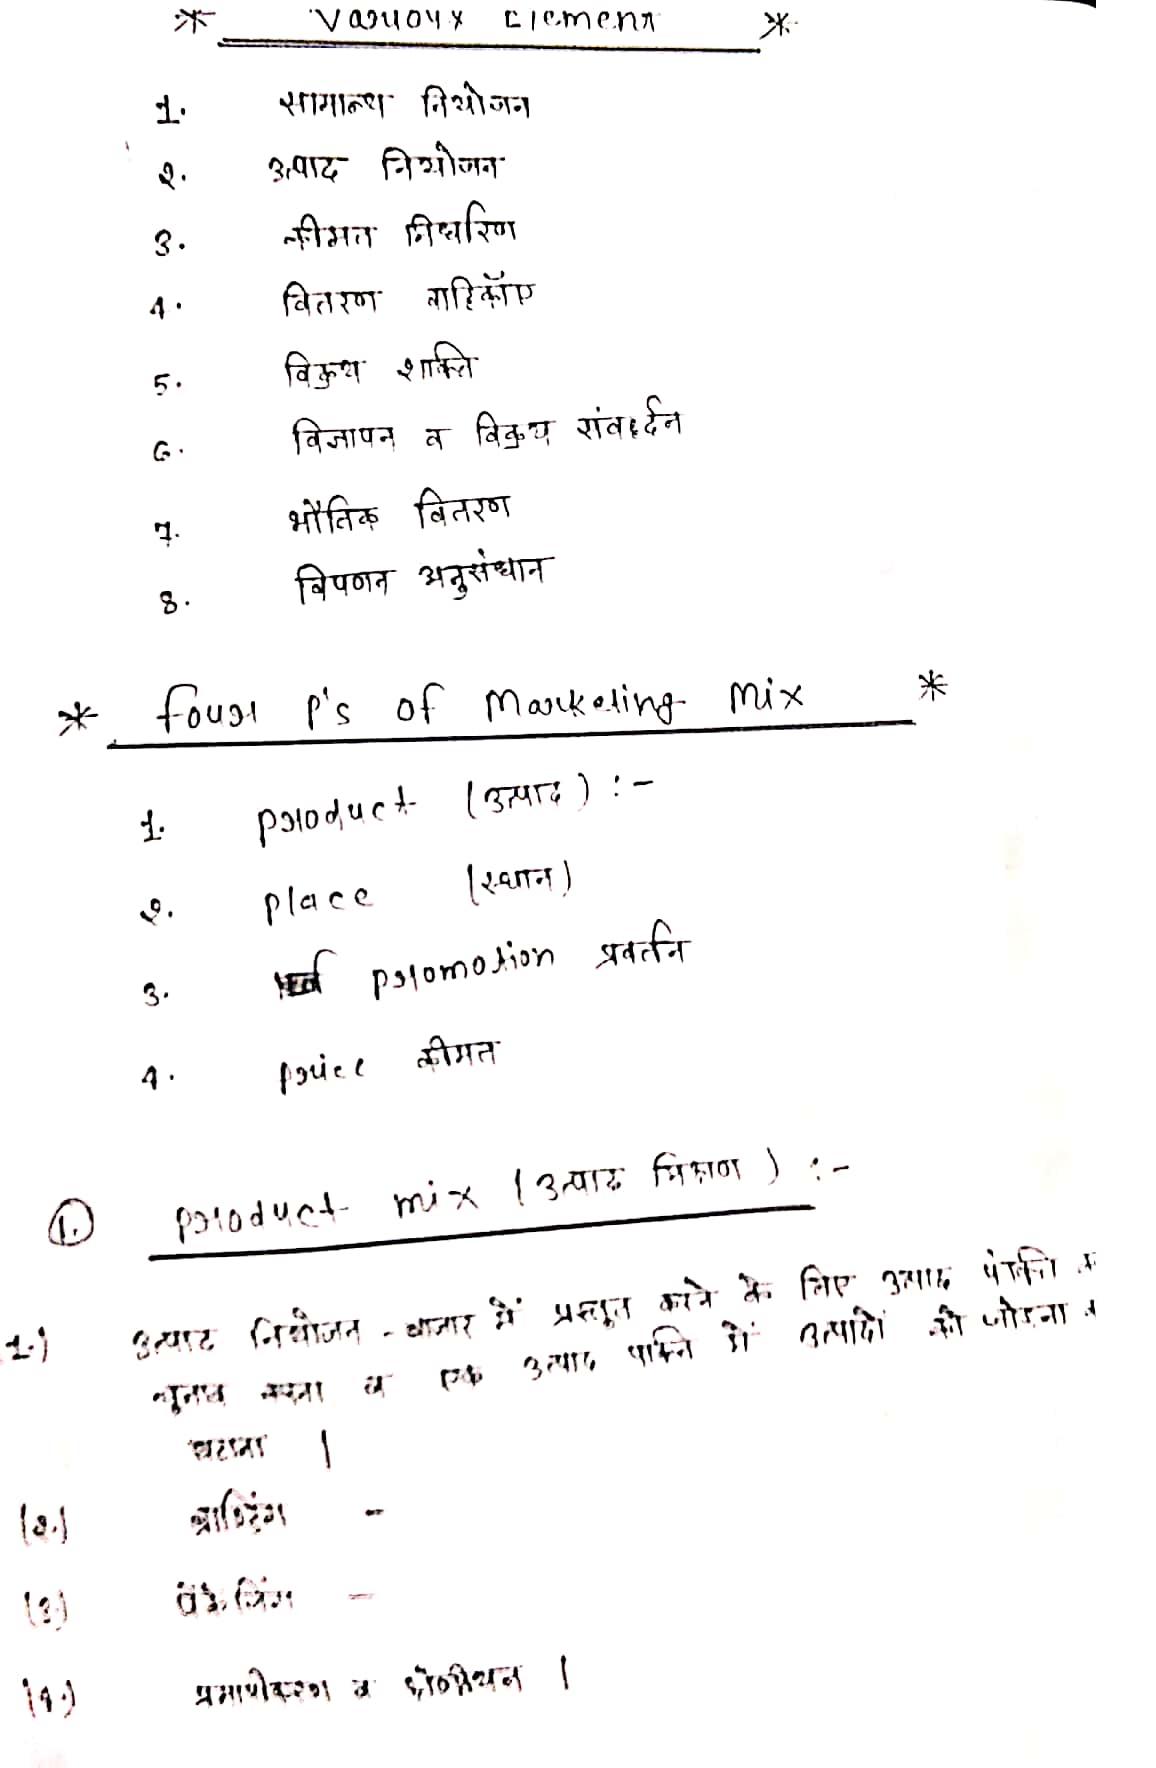 * Various Element *
1. सामान्य नियोजन
2. उत्पाद नियोजन
3. कीमत निर्धारण
4. वितरण वाहिकाँए
5. विक्रय शक्ति
6. विज्ञापन व विक्रय संवर्द्दन
7. भौतिक वितरण
8. विपणन अनुसंधान
* four p's of Marketing Mix *
1. product (उत्पाद) :-
2. place (स्थान)
3. promotion प्रवर्तन
4. price कीमत
1. product mix (उत्पाद मिश्रण) :-
1.) उत्पाद नियोजन - बाजार में प्रस्तुत करने के लिए उत्पाद पंक्ति
चुनाव करना व एक उत्पाद पंक्ति में उत्पादों को जोडना व
घटाना |
(2.) ब्राण्डिंग -
(3) पैकेजिंग -
(4.) प्रमापीकरण व श्रेणीयन |